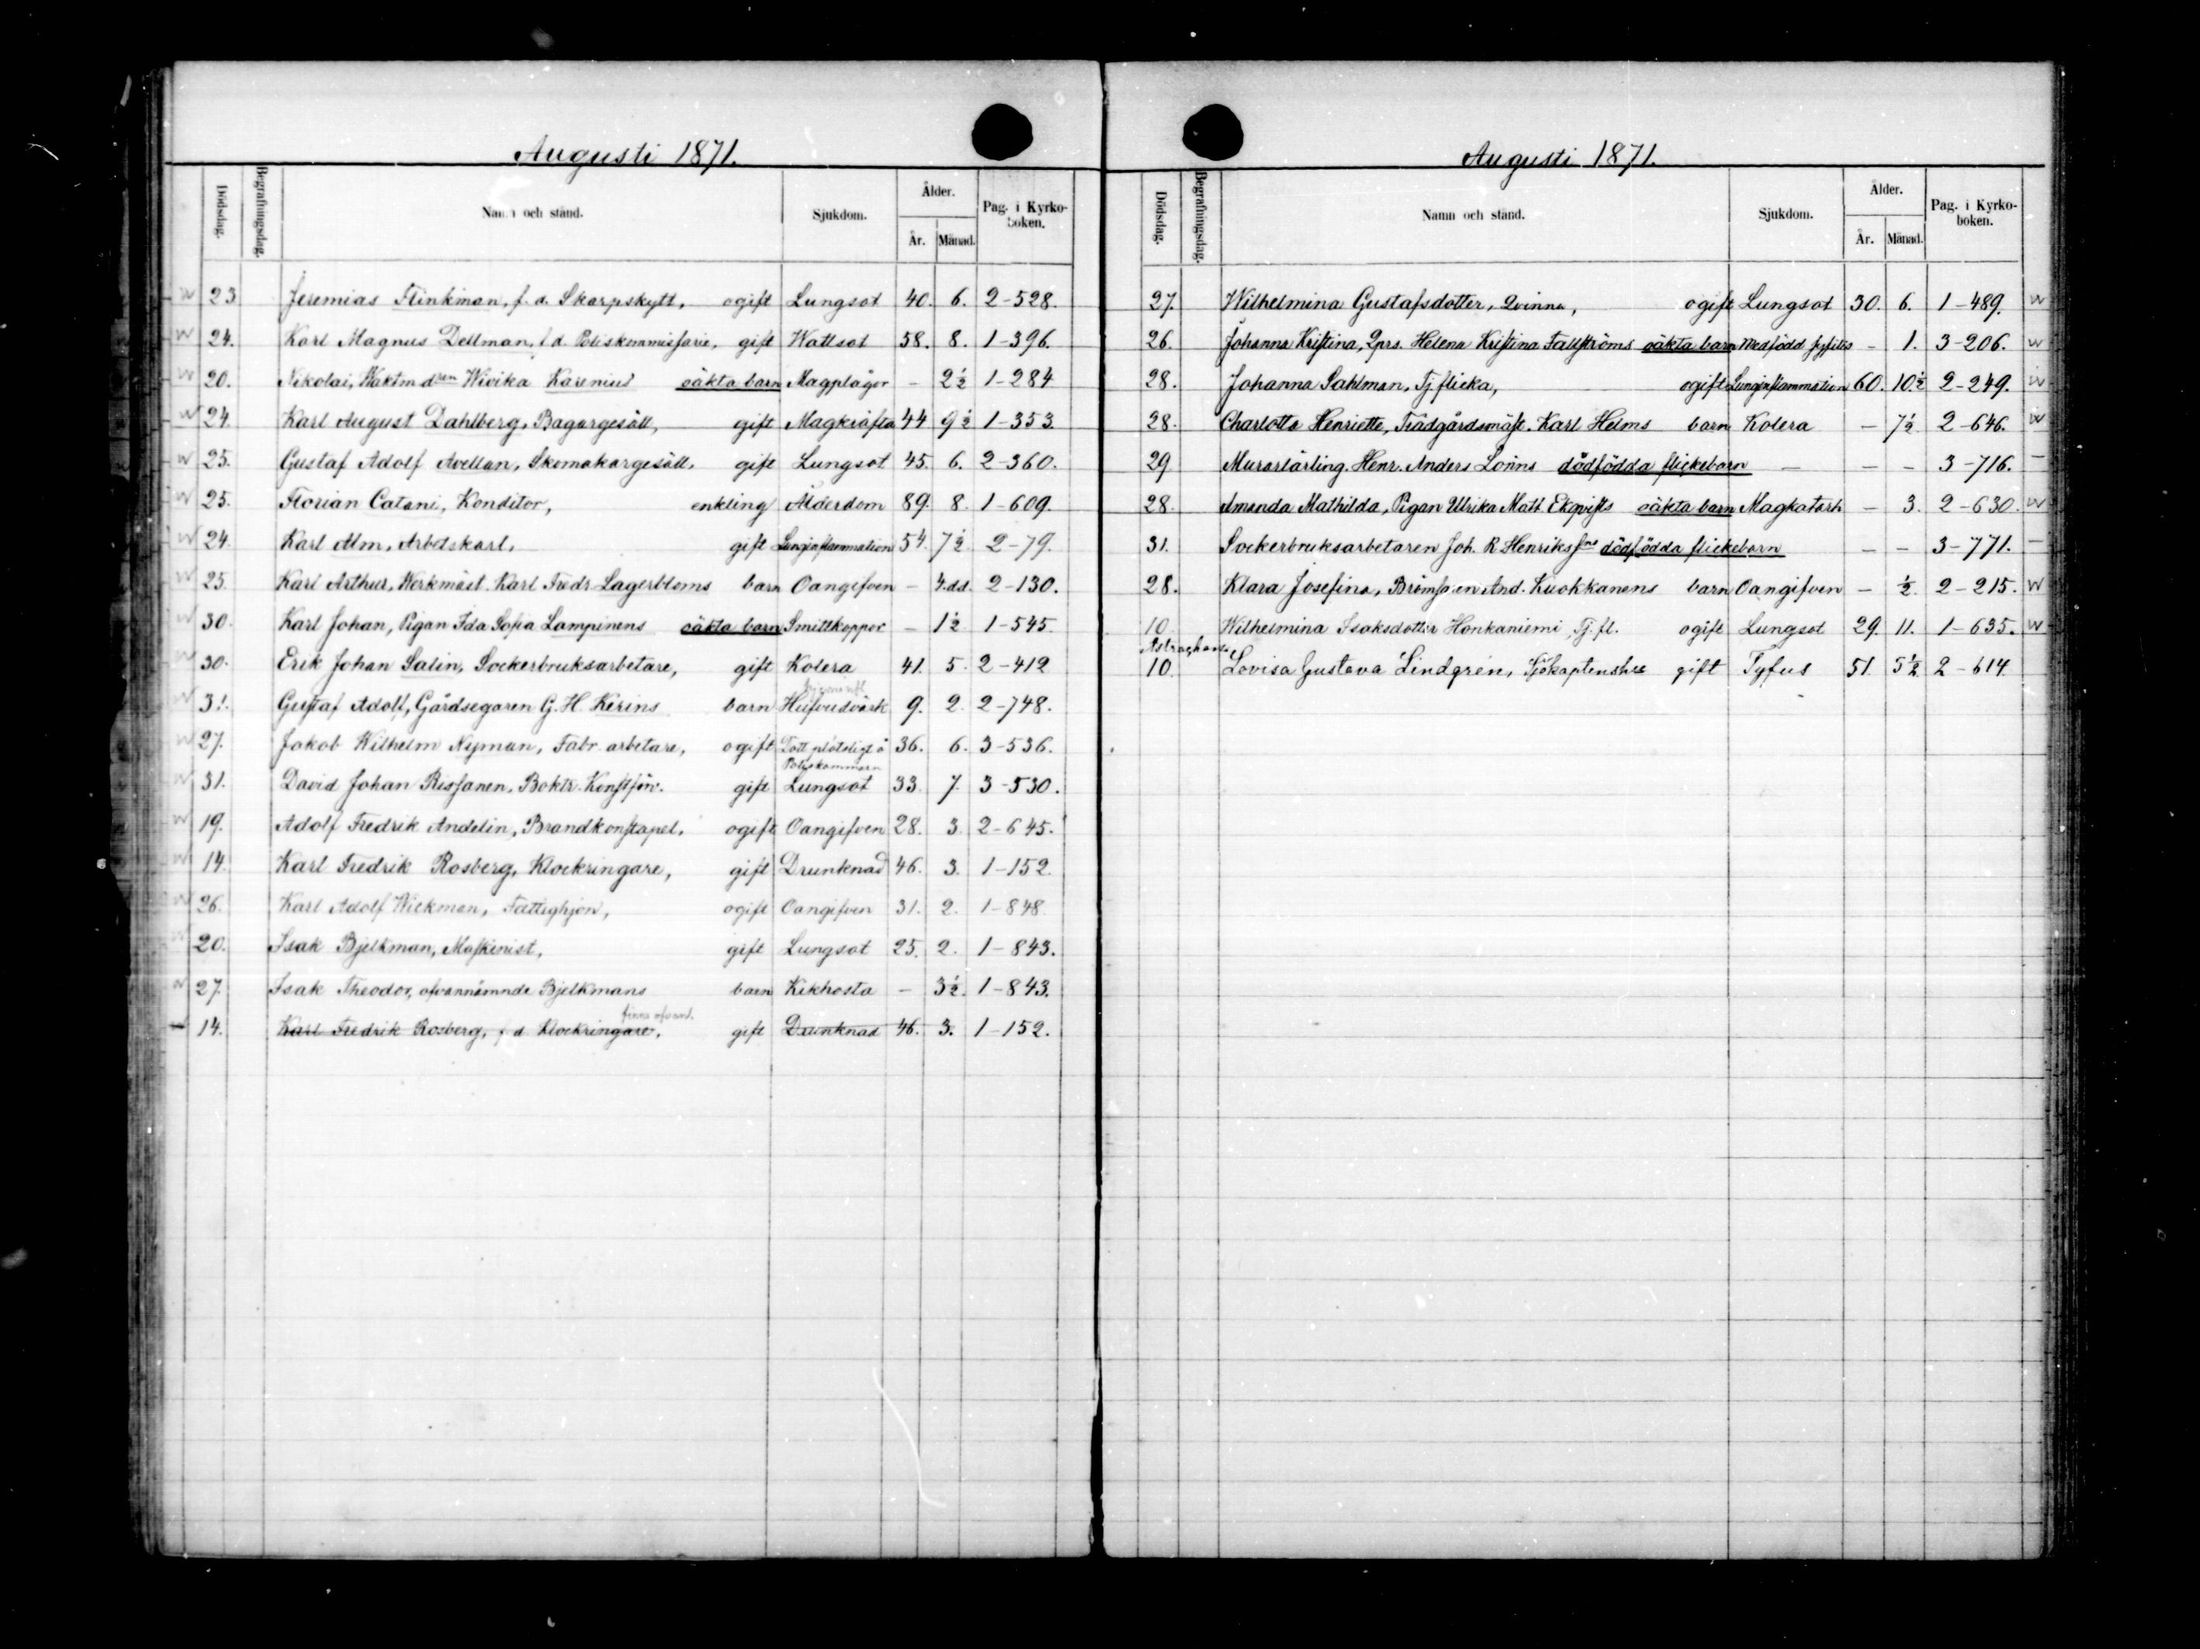 Augusti 1871.
Dödsdag. Begrafningsdag. Namn och stånd. Sjukdom. Ålder. År. Månad. Pag. i Kyrko-boken.
w 23 Jeremias Flinkman, f. d. Skarpskytt, ogift Lungsot 40. 6. 2-528.
w 24. Karl Magnus Dellman, f. d. Poliskommissarie, gift Wattsot 58. 8. 1-396.
w 20. Nikolai, Waktm dren Wivika Karenius oäkta barn Magplågor - 2½ 1-284
w 24. Karl August Dahlberg, Bagaregesäll, gift Magkräfta 44 9½ 1-353.
w 25. Gustaf Adolf Avellan, Skomakargesäll, gift Lungsot 45. 6. 2-360.
w 25. Florian Catani, Konditor, enkling Ålderdom 89. 8. 1-609.
w 24. Karl Alm, Arbetskarl, gift Lunginflammation 54. 7½ 2-79.
w 25. Karl Arthur, Werkmäst. Karl Fredr. Lagerbloms barn Oangifven - 4.dd. 2-130.
w 30. Karl Johan, Pigan Ida Sofia Lampinens oäkta barn Smittkoppor - 1½ 1-545.
w 30. Erik Johan Salin, Sockerbruksarbetare, gift Kolera 41. 5. 2-412
w 31. Gustaf Adolf, Gårdsegaren G. H. Kerins barn Hufvudvärk 9. 2. 2-748.
w 27. Jakob Wilhelm Nyman, Fabr. arbetare, ogift Dött plötsligt å Poliskammarn 36. 6. 3-536.
w 31. David Johan Rissanen, Boktr. Konstför. gift Lungsot 33. 7. 3-530.
w 19. Adolf Fredrik Andelin, Brandkonstapel, ogift Oangifven 28. 3. 2-645.
w 14. Karl Fredrik Rosberg, Klockringare, gift Drunknad 46. 3. 1-152.
w 26. Karl Adolf Wickman, Fattighjon, ogift Oangifven 31. 2. 1-848
20. Isak Bjelkman, Maskinist, gift Lungsot 25. 2. 1-843.
w 27. Isak Theodor, ofvannämnde Bjelkmans barn Kikhosta - 3½. 1-843.
finns ofvand.
14. Karl Fredrik Rosberg, f d. Klockringare, gift Drunknad 46. 3. 1-152.
Augusti 1871.
Dödsdag. Begrafningsdag. Namn och stånd. Sjukdom. Ålder. År. Månad. Pag. i Kyrko-boken.
27. Wilhelmina Gustafsdotter, Qvinna, ogift Lungsot 30. 6. 1-489. w
26. Johanna Kristina, Qprs. Helena Kristina Fallströms oäkta barn Medfödd syfilis - 1. 3-206. w
28. Johanna Sahlman, Tj flicka, ogift Lunginflammation 60. 10½ 2-249. w
28. Charlotta Henriette, Trädgårdsmäst. Karl Helms barn Kolera - 7½ 2-646. w
29 Murarlärling. Henr. Anders Lönns dödfödda flickebarn - - - 3-716. -
28. Amanda Mathilda, Pigan Ulrika Math. Ekqvists oäkta barn Magkatarh - 3. 2-630 w
31. Sockerbruksarbetaren Joh. R. Henrikssns dödfödda flickebarn - - 3-771. -
28. Klara Josefina, And. Kuokkanens barn Oangifven - ½. 2-215. w
10 Wilhelmina Isaksdotter Honkaniemi, Tj. fl. ogift Lungsot 29. 11. 1-635. w
Astrachan
10. Lovisa Gustava Lindgrén, Sjökaptenska gift Tyfus 51. 5½ 2-614.